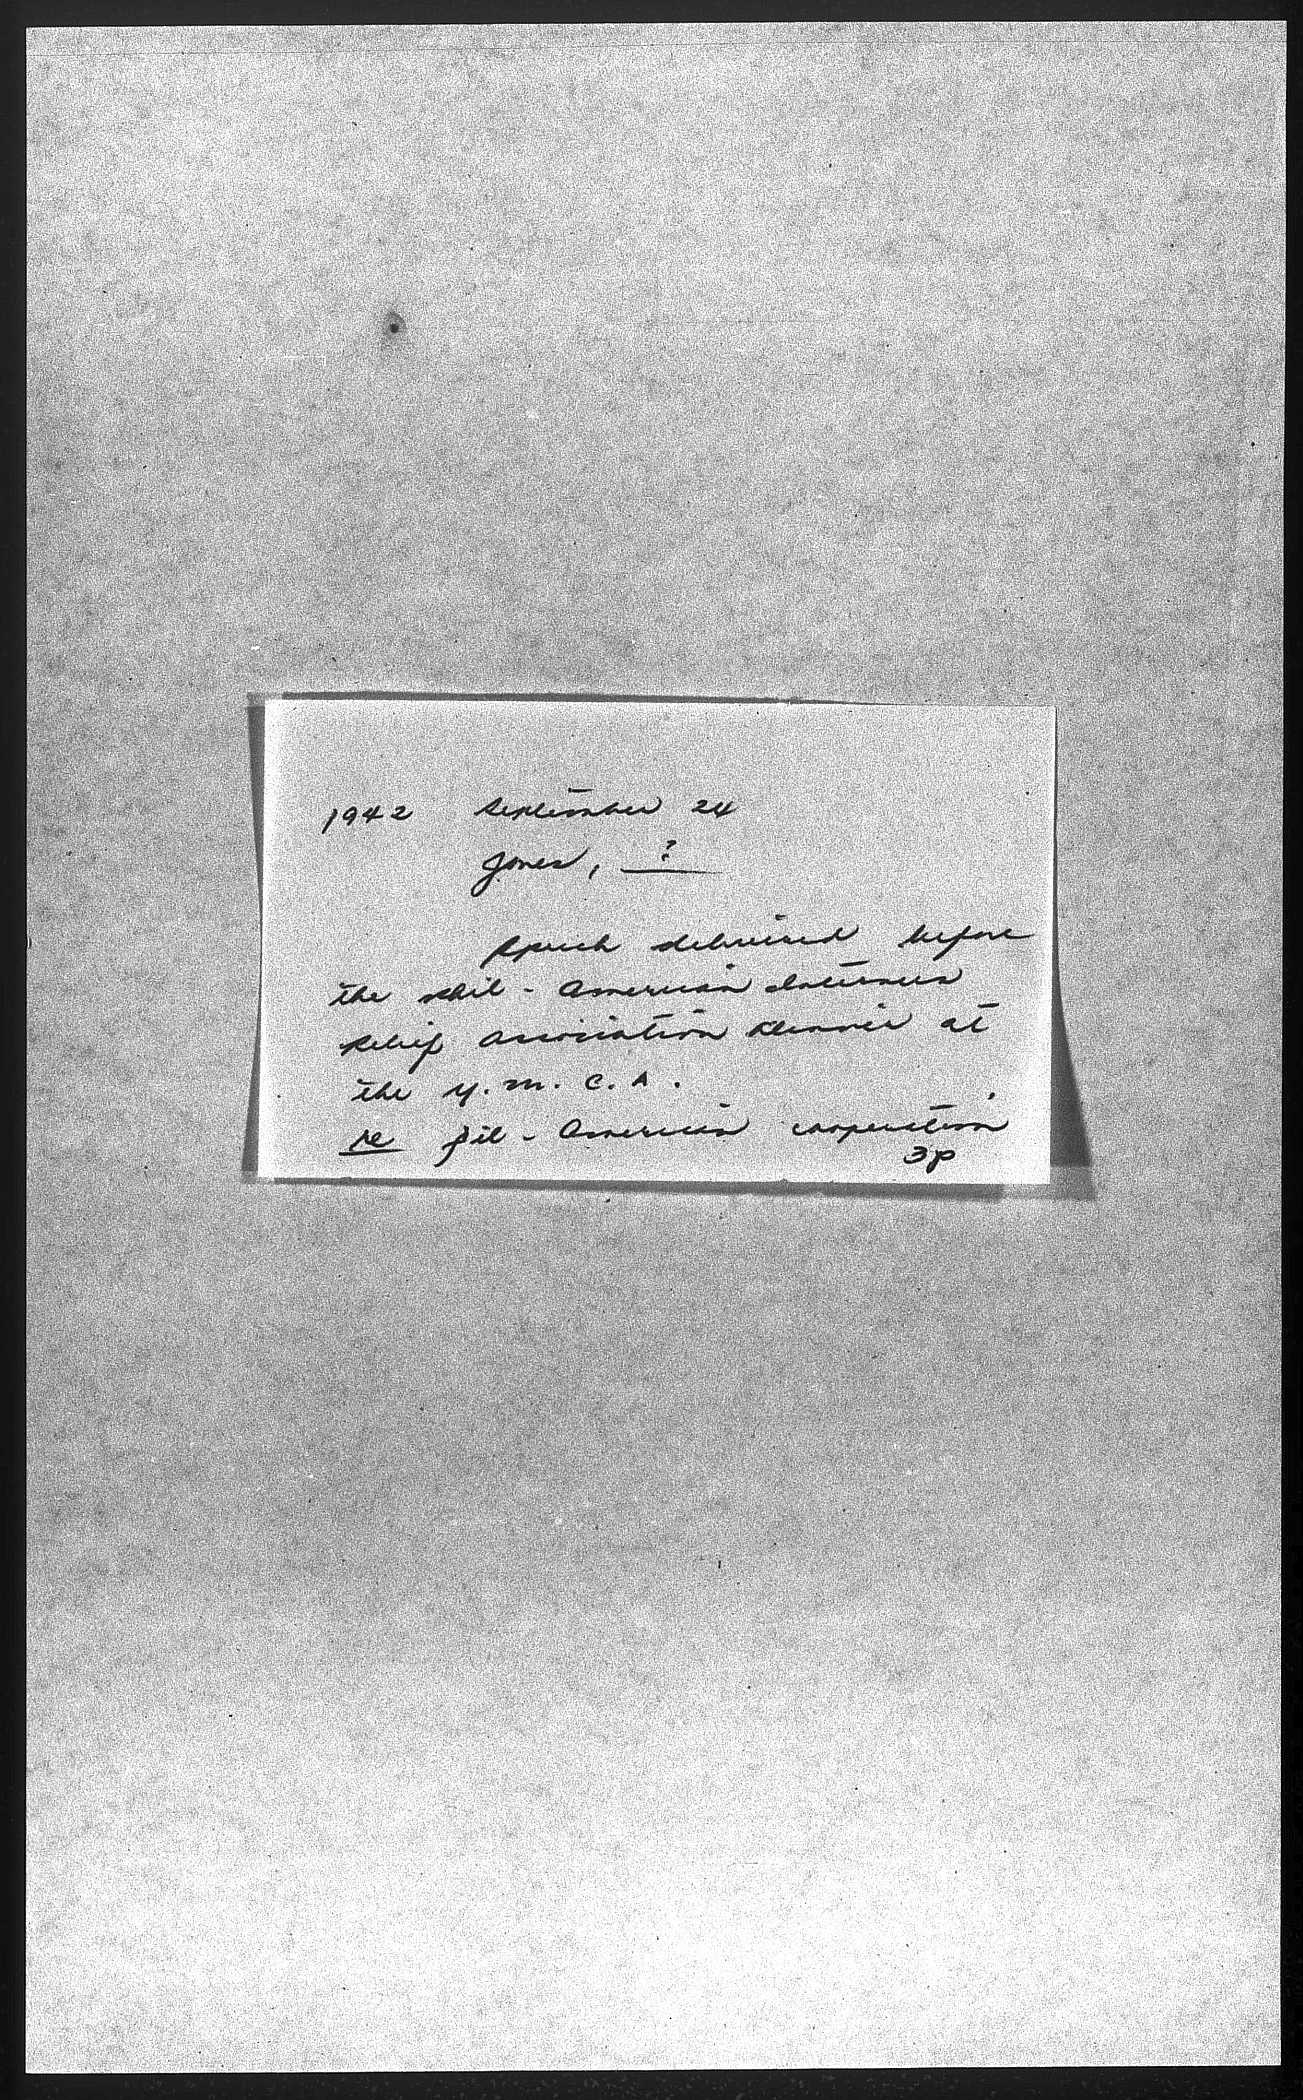 1942 September 24
Jones, ?
Speech delivered before
the Phil-American
Relief Association Dinner at
the Y.M.C.A.
re Fil-American cooperation
3p